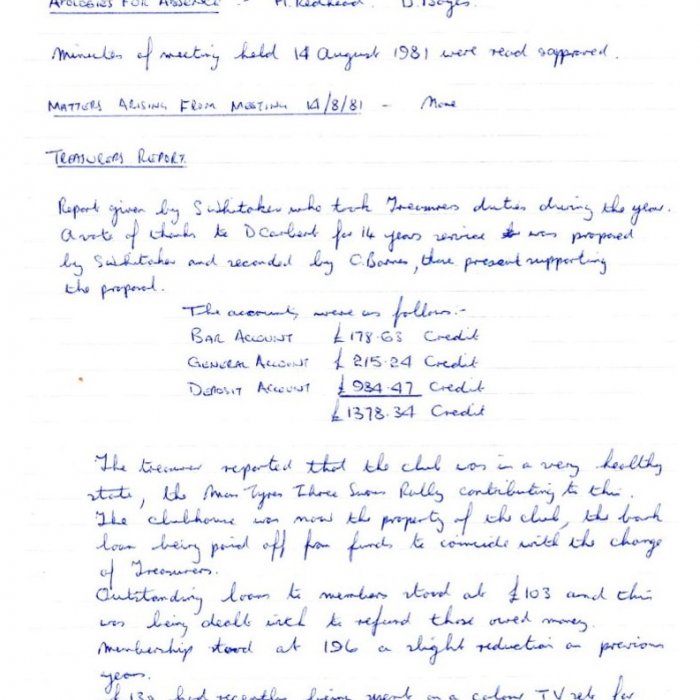 APOLOGIES FOR ABSENCE :- M. Redhead. D. Boyes.
Minutes of meeting held 14 August 1981 were read & approved.
MATTERS ARISING FROM MEETING 14/8/81 - None
TREASURERS REPORT.
Report given by S Whitaker who took Treasurers duties during the year.
A vote of thanks to D Carbert for 14 years service was proposed
by S Whitaker and seconded by C. Barnes, those present supporting
the proposal.
The accounts were as follows:-
BAR ACCOUNT £178.63 Credit
GENERAL ACCOUNT £215.24 Credit
DEPOSIT ACCOUNT £984.47 Credit
£1378.34 Credit
The treasurer reported that the club was in a very healthy
state, the Tyres Three Swans Rally contributing to this.
The clubhouse was now the property of the club, the bank
loan being paid off from funds to coincide with the change
of Treasurers.
Outstanding loans to members stood at £103 and this
was being dealt with to refund those owed money.
Membership stood at 196 a slight reduction on previous
years.
had recently being spent on a colour TV sets for